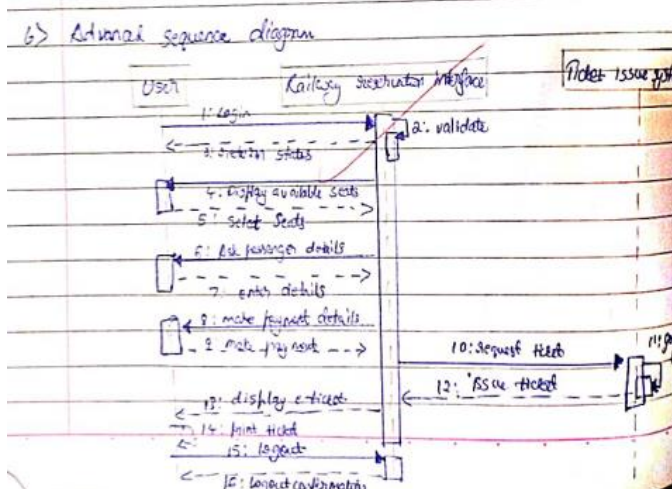 6> Advanced sequence diagram
User
Railway reservation interface
Ticket issue syst
1: Login
2: validate
3: return status
4: Display available seats
5: Select Seats
6: Ask passenger details
7: enter details
8: make payment details
9: make payment
10: request ticket
11: g
12: issue ticket
13: display e-ticket
14: print ticket
15: logout
16: logout confirmation